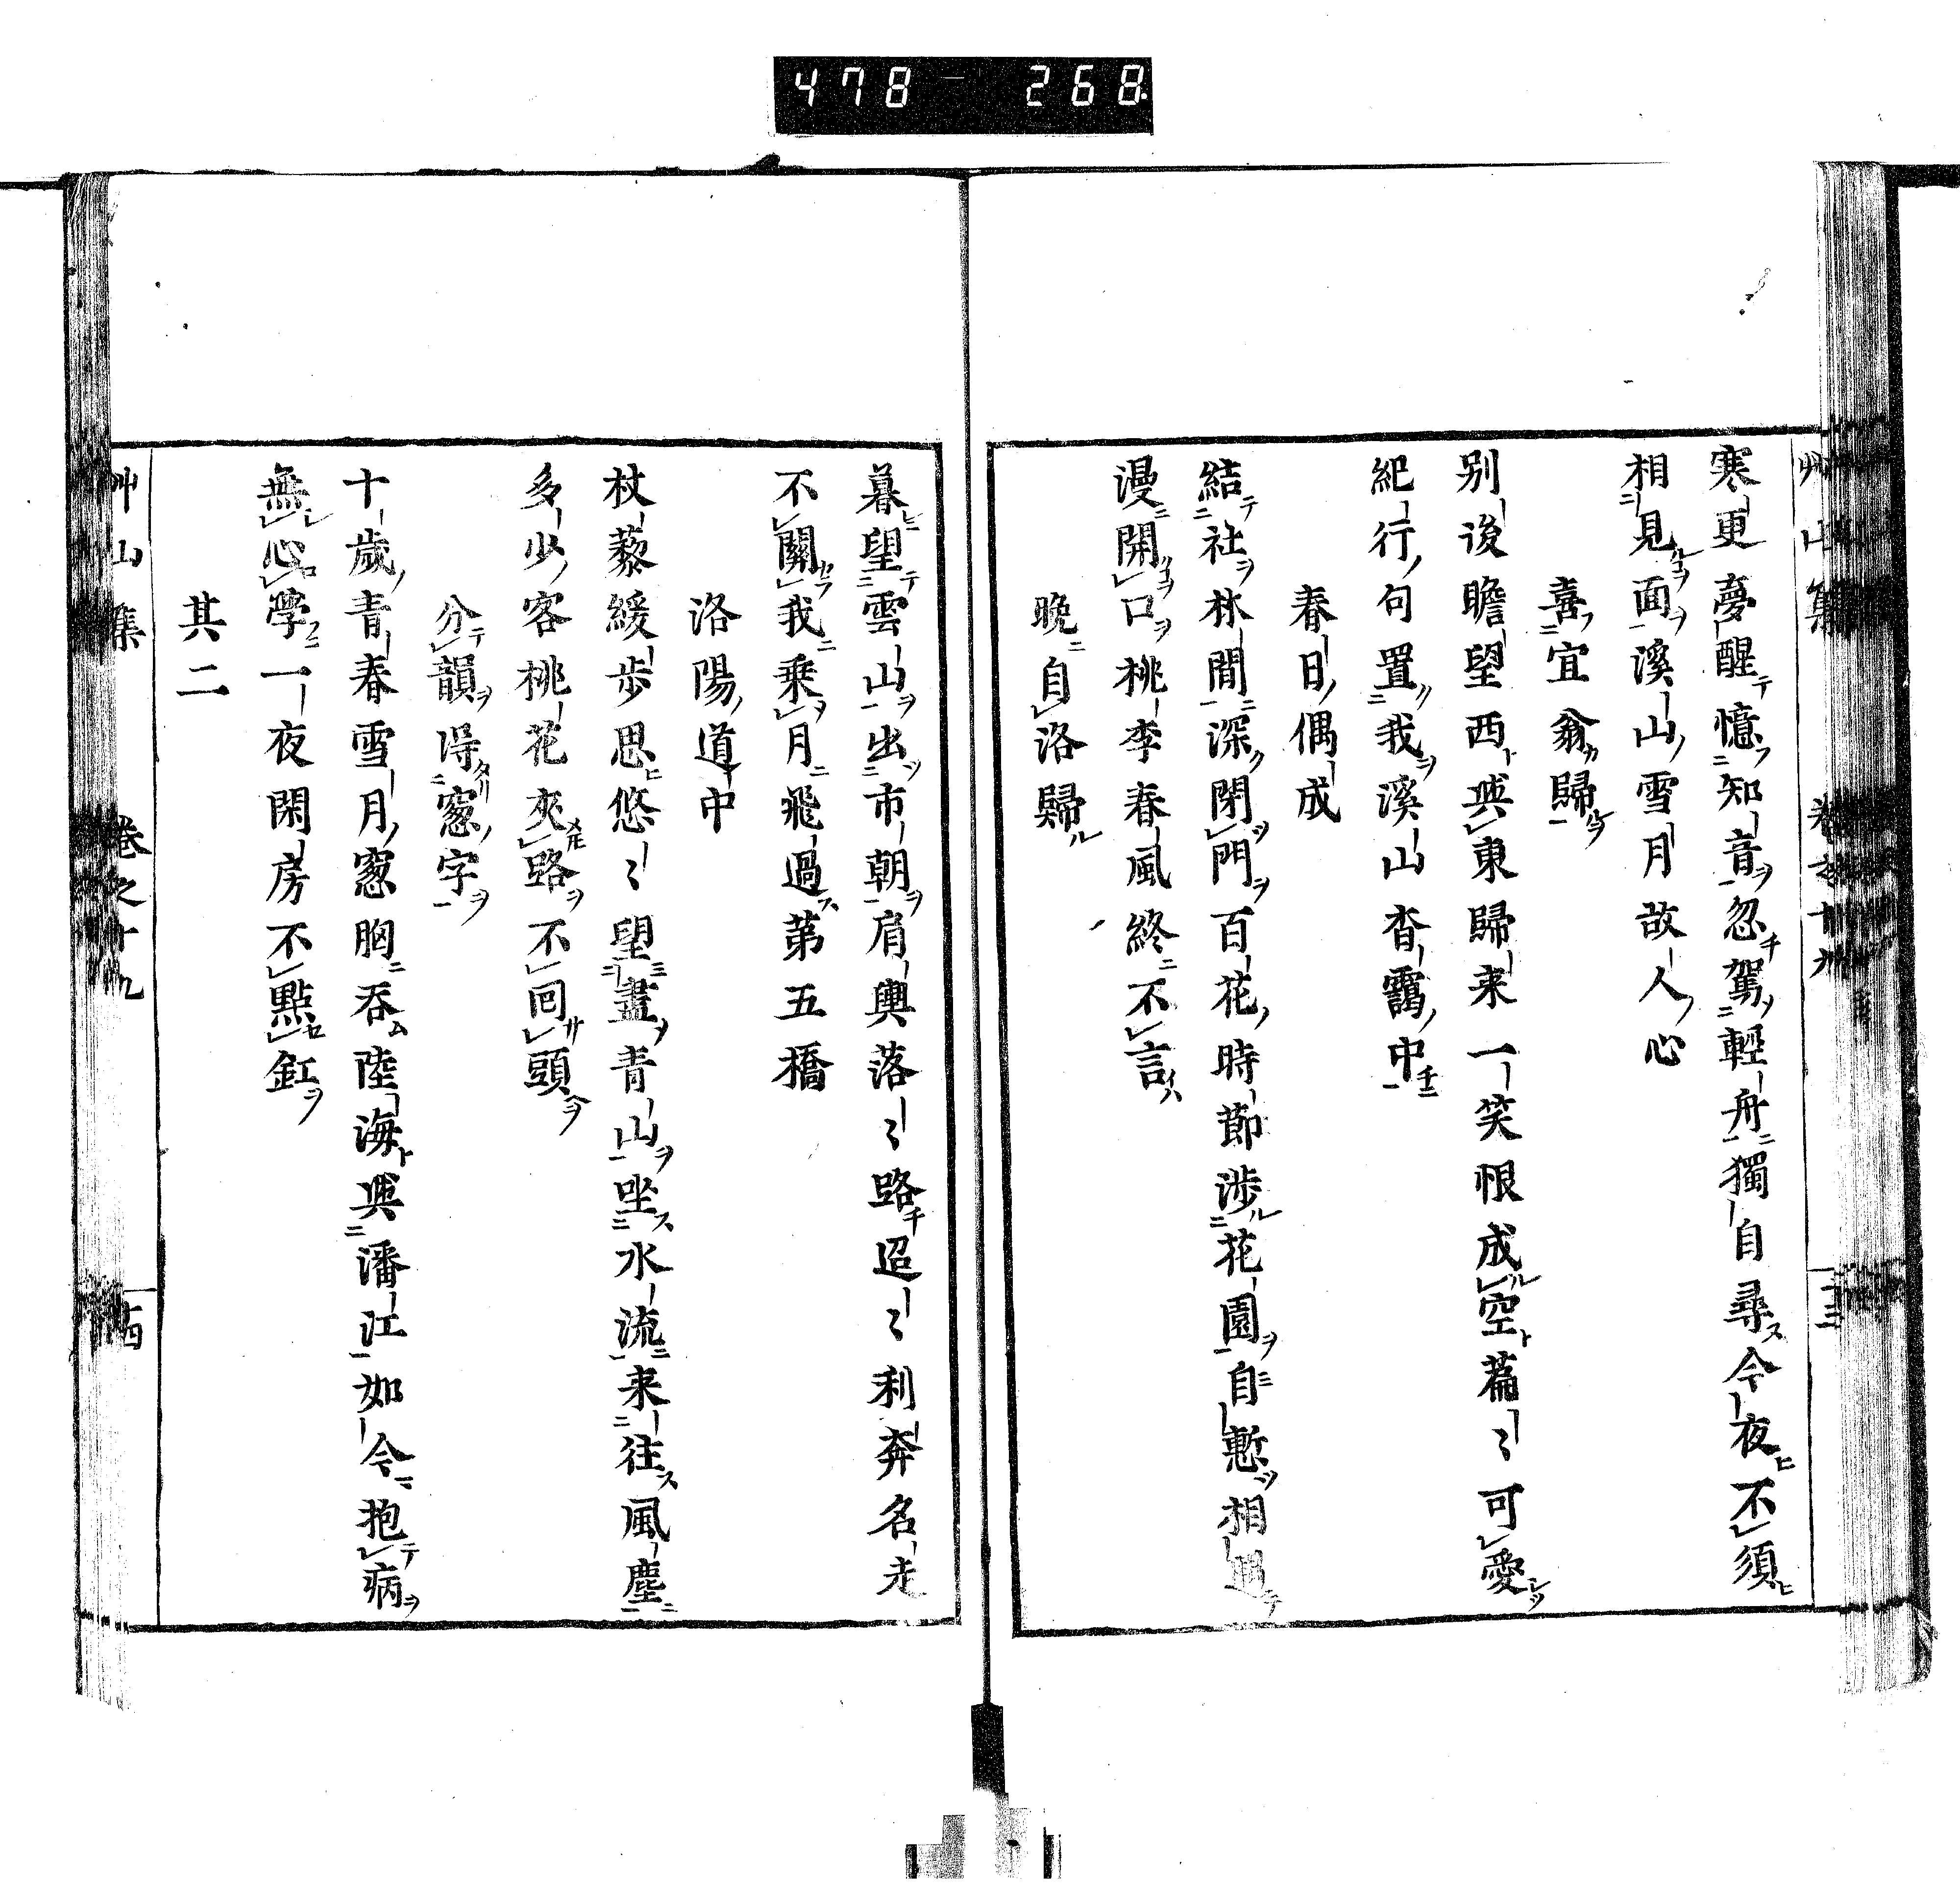 478 268
寒更夢醒憶知音忽駕輕舟獨自尋今夜不須
相見面溪山雪月故人心
喜宜翁歸
別後瞻望西與東歸来一笑恨成空篇〻可愛
紀行句置我溪山杳靄中
春日偶成
結社林間深閉門百花時節渉花園自慙相
漫開口桃李春風終不言
晩自洛歸
暮望雲山出市朝肩輿落〻路迢〻利奔名走
不關我乗月飛過第五橋
洛陽道中
杖藜緩歩思悠〻望盡青山坐水流来往風塵
多少客桃花夾路不回頭
分韻得窓字
十歳青春雪月窓胸吞陸海與潘江如今抱病
無心學一夜閑房不點釭
其二
艸山集 卷之十九 十四